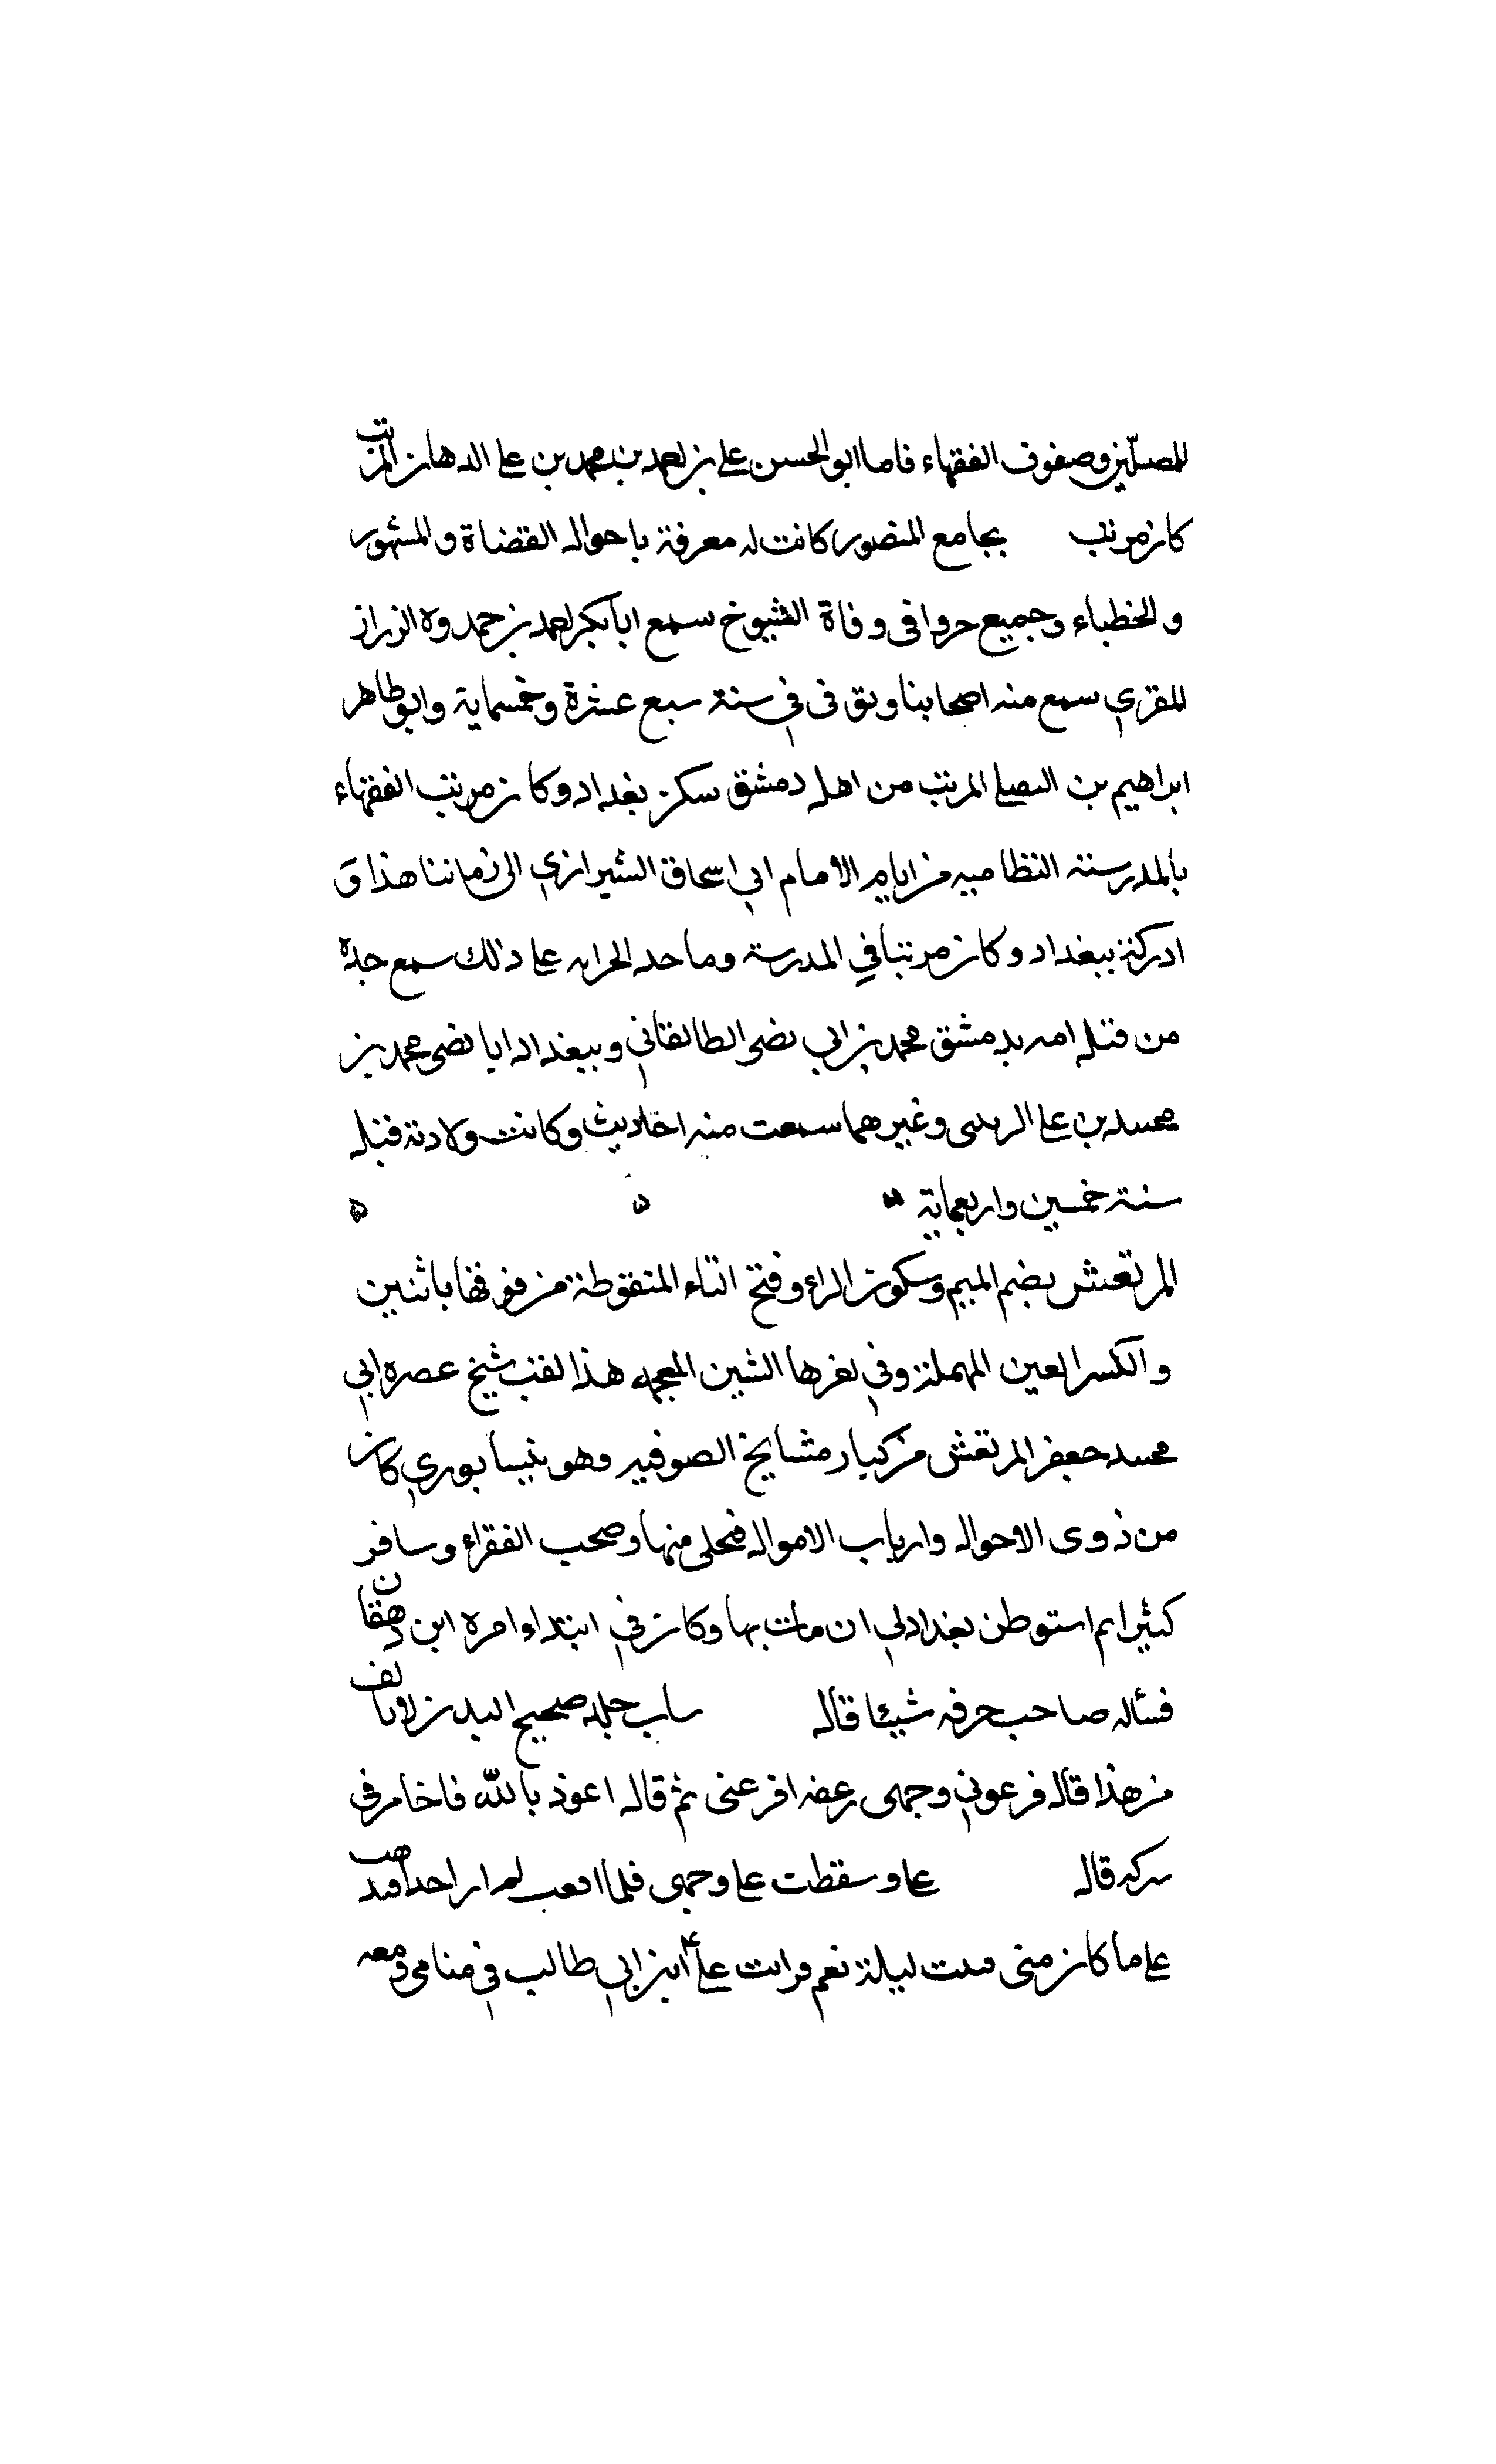 للمصلّين وصفوف الفقهاء فاما ابو الحسن على بن احمد بن محمد بن على الدهان المرتب
كان مرتب بجامع المنصور كانت له معرفة باحوال القضاة والمشهور
والخطباء وجميع حروا فى وفاة الشيوخ سمع ابا بكر احمد بن حمدوه الزراز
المقرى سمع منه اصحابنا وتوفى فى سنة سبع عشرة وخمسماية وابو طاهر
ابراهيم بن المرتب من اهل دمشق سكن بغداد وكان مرتب الفقهاء
بالمدرسة النظامية من ايام الامام ابى اسحاق الشيرازى الى زماننا هذا و
ادركته ببغداد وكان مرتبا فى المدرسة وماحد على ذلك سمع جده
من قبل امه بدمشق محمد بن ابى نصر الطالقانى وببغداد ابا نصر محمد بن
محمد بن على وغيرهما سمعت منه احاديث وكانت ولادته قبل
سنة خمسين واربعماية
المرتعش بضم الميم وسكون الراء وفتح التاء المنقوطة من فوقها باثنين
والكسر العين المهملة وفى اخرها الشين المعجمه هذا لقب شيخ عصره ابى
محمد جعفر المرتعش من كبار مشايخ الصوفيه وهو نيسابورى كان
من ذوى الاحوال وارباب الاموال فتخلى منها وصحب الفقراء وسافر
كثيرا ثم استوطن بغداد الى ان مات بها وكان فى ابتداء امره ابن دهقان
فسأل صاحب حرفه شيئا قال ساب جلد صحيح البدن لا يانف
من هذا قال فرعونى وجهى رعصه افرعنى ثم قال اعوذ بالله فاخامر فى
سركه قال على وسقطت على وجهى فلما لم ار احدا
على ما كان منى ليلة نعم فرايت على ابن ابى طالب فى منامى ومعه